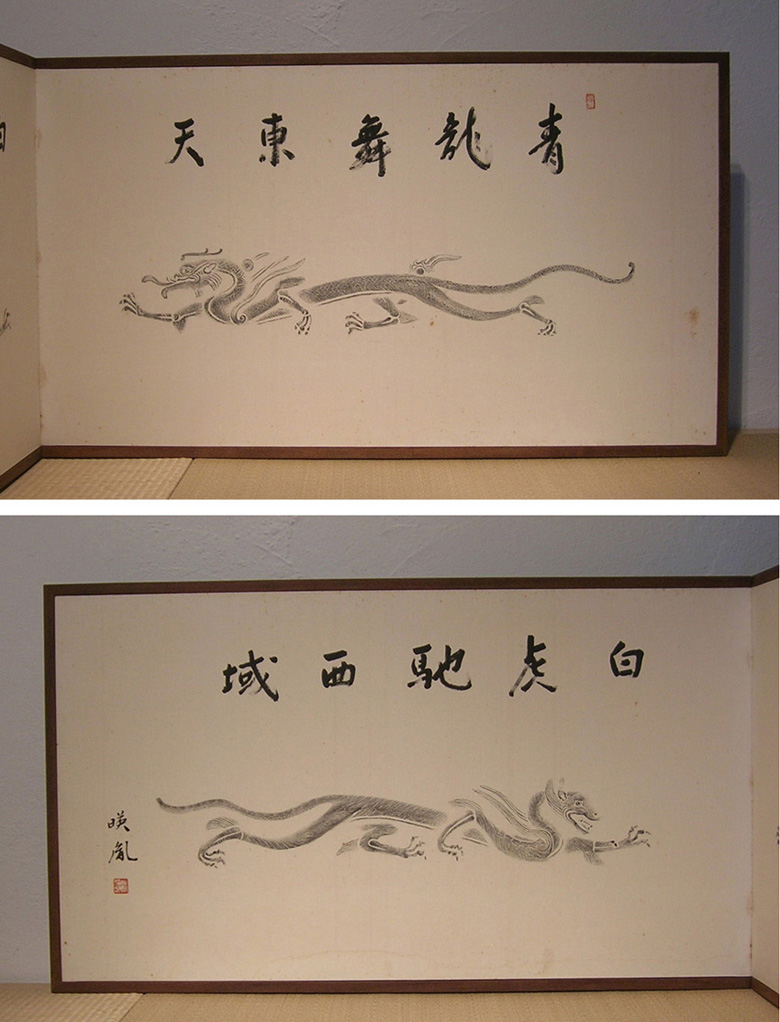 青龍舞東天
白虎馳西域
暎胤